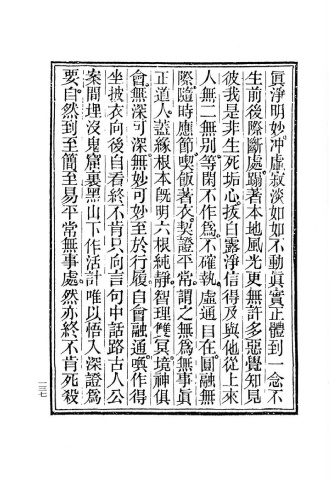 眞淨明妙沖虛寂淡如如不動眞實正體到一念不
生前後際斷處蹋著本地風光更無許多惡覺知見
彼我是非生死垢心拔白露淨信得及與他從上來
人無二無別等閑不作爲不確執虛通自在圓融無
際隨時應節喫飯著衣契證平常謂之無爲無事眞
正道人蓋緣根本旣明六根純靜智理雙冥境神俱
會無深可深無妙可妙至於行履自會融通嘆作得
坐披衣向後自看終不肯只向言句中話路古人公
案間埋沒鬼窟裏黑山下作活計唯以悟入深證爲
要自然到至簡至易平常無事處然亦終不肯死殺
一三七